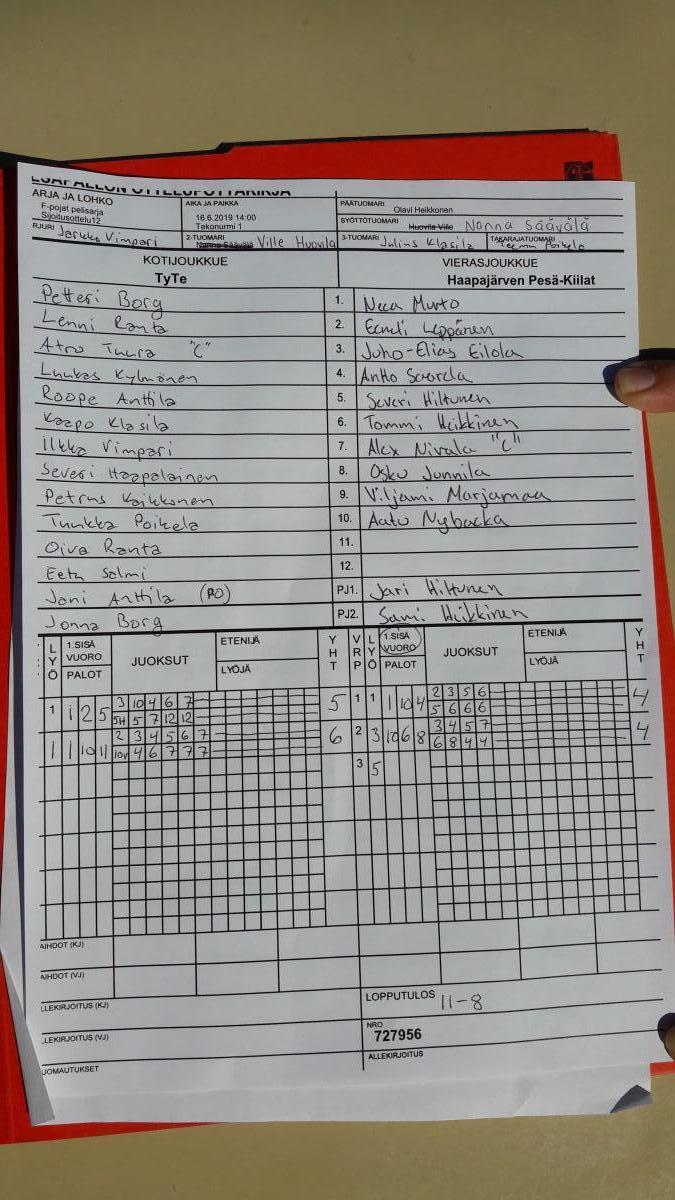 ESÄPALLON OTTELUPÖYTÄKIRJA
ARJA JA LOHKO
F-pojat pelisarja
Sijoitusottelu12
AIKA JA PAIKKA
16.6.2019 14:00
Tekonurmi 1
PÄÄTUOMARI
Olavi Heikkonen
SYÖTTÖTUOMARI Huovila Ville Nanna Säävälä
RJURI Jarkko Vimpari
2-TUOMARI Nanna Säävälä Ville Huovila
3-TUOMARI Julius Klasila
TAKARAJATUOMARI Teemu Poikela
KOTIJOUKKUE
TyTe
VIERASJOUKKUE
Haapajärven Pesä-Kiilat
Petteri Borg 1. Neea Murto
Lenni Ranta 2. Eemeli Leppänen
Atro Tuura "C" 3. Juho-Elias Eilola
Luukas Kylmänen 4. Antto Saarela
Roope Anttila 5. Severi Hiltunen
Kaapo Klasila 6. Tommi Heikkinen
Ilkka Vimpari 7. Alex Nivala "C"
Severi Haapalainen 8. Osku Junnila
Petrus Kaikkonen 9. Viljami Marjamaa
Tuukka Poikela 10. Aatu Nybacka
Oiva Ranta 11.
Eetu Salmi 12.
Jani Anttila (PO) PJ1. Jari Hiltunen
Jonna Borg PJ2. Sami Heikkinen
LYÖ 1.SISÄ VUORO PALOT JUOKSUT ETENIJÄ LYÖJÄ YHT VRP LYÖ 1.SISÄ VUORO PALOT JUOKSUT ETENIJÄ LYÖJÄ YHT
3 10 4 6 7 2 3 5 6
1 1 2 5 5 1 1 1 10 4 4
5H 5 7 12 12 5 6 6 6
2 3 4 5 6 7 3 4 5 7
1 1 10 11 6 2 3 10 6 8 4
10V 4 6 7 7 7 6 8 4 4
3 5
AIHDOT (KJ)
AIHDOT (VJ)
LLEKIRJOITUS (KJ)
LOPPUTULOS 11-8
LLEKIRJOITUS (VJ)
NRO
727956
UOMAUTUKSET
ALLEKIRJOITUS